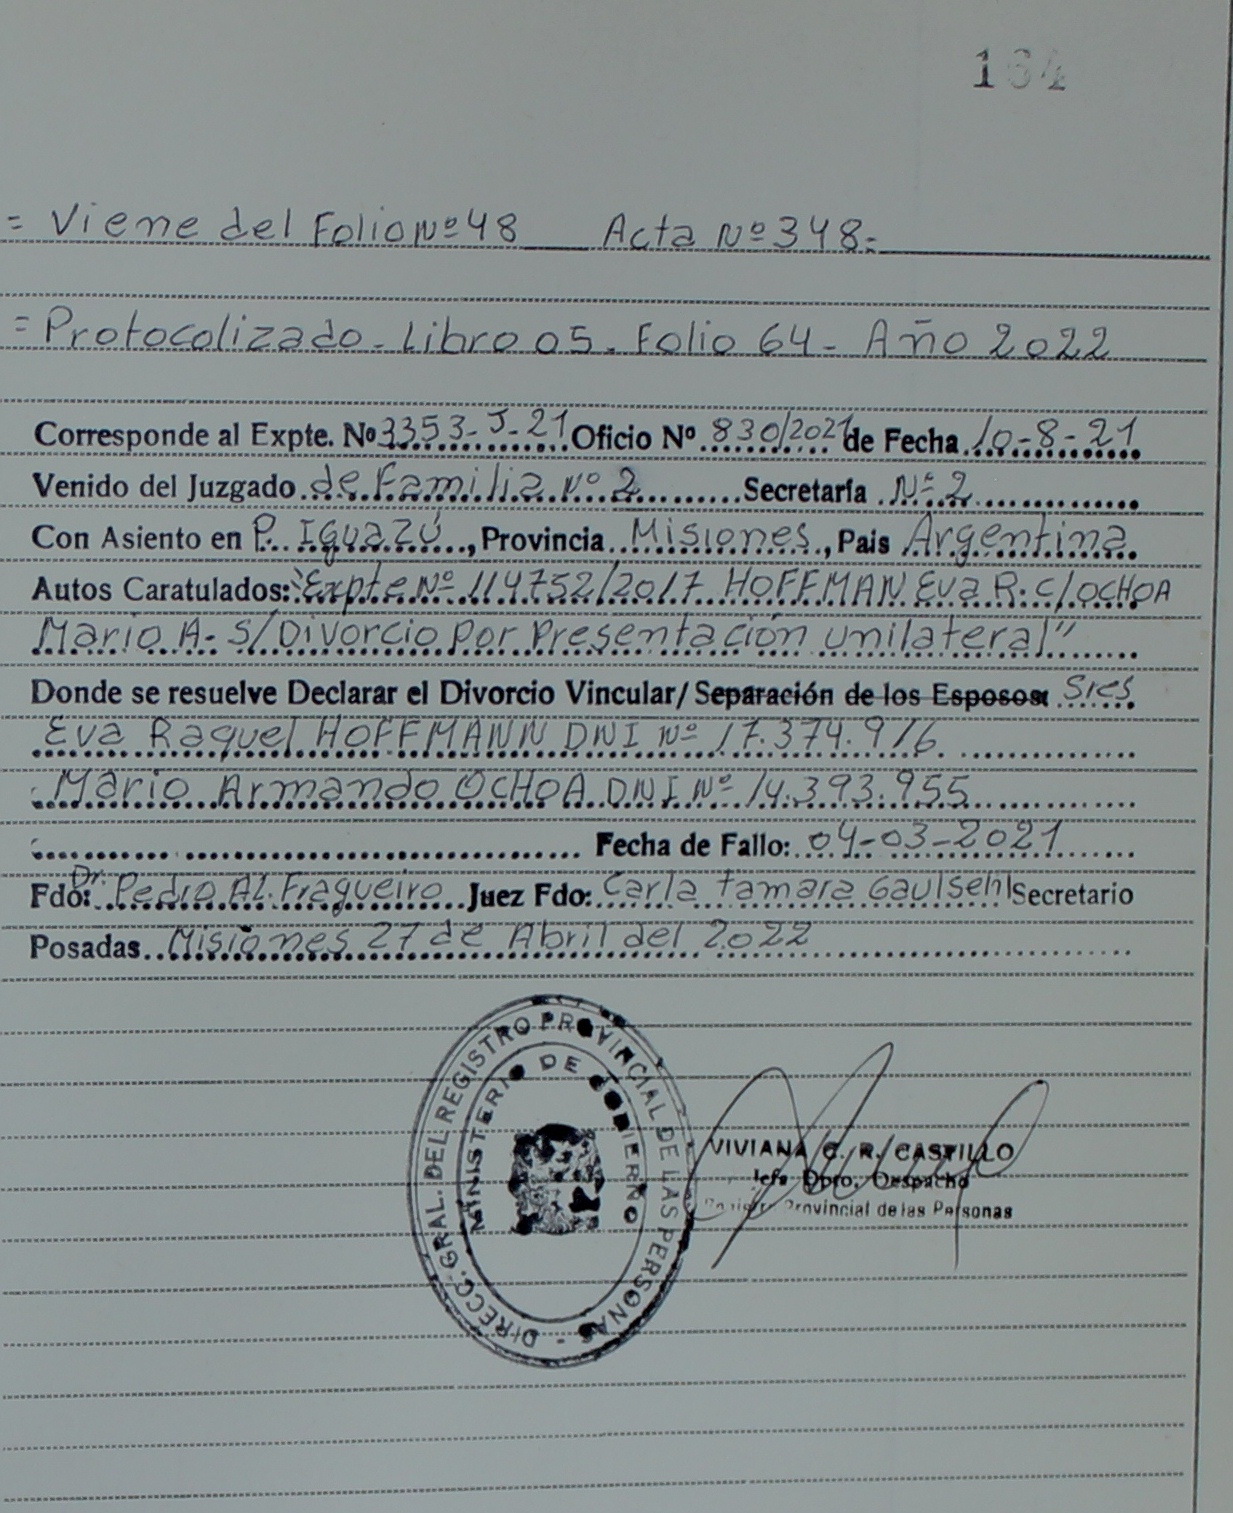 164
= Viene del Folio Nº 48 Acta Nº 348=
= Protocolizado - Libro 05 - Folio 64 - Año 2022
Corresponde al Expte. Nº 3353-J-21 Oficio Nº 830/2021 de Fecha 10-8-21
Venido del Juzgado de Familia Nº 2 Secretaría Nº 2
Con Asiento en P. Iguazú, Provincia Misiones, Pais Argentina
Autos Caratulados: "Expte Nº 114752/2017 HOFFMAN Eva R. c/ OCHOA
Mario A- S/ Divorcio por Presentación unilateral"
Donde se resuelve Declarar el Divorcio Vincular/ Separación de los Esposos: Sres
Eva Raquel HOFFMANN DNI Nº 17.374.916
Mario Armando OCHOA DNI Nº 14.393.955
Fecha de Fallo: 04-03-2021
Fdo: Dr. Pedro Al. Fragueiro Juez Fdo: Carla tamara Secretario
Posadas Misiones 27 de Abril del 2022
DIRECC. GRAL. DEL REGISTRO PROVINCIAL DE LAS PERSONAS -
MINISTERIO DE GOBIERNO
VIVIANA C. R. CASTILLO
Jefa Dpto. Despacho
Registro Provincial de las Personas